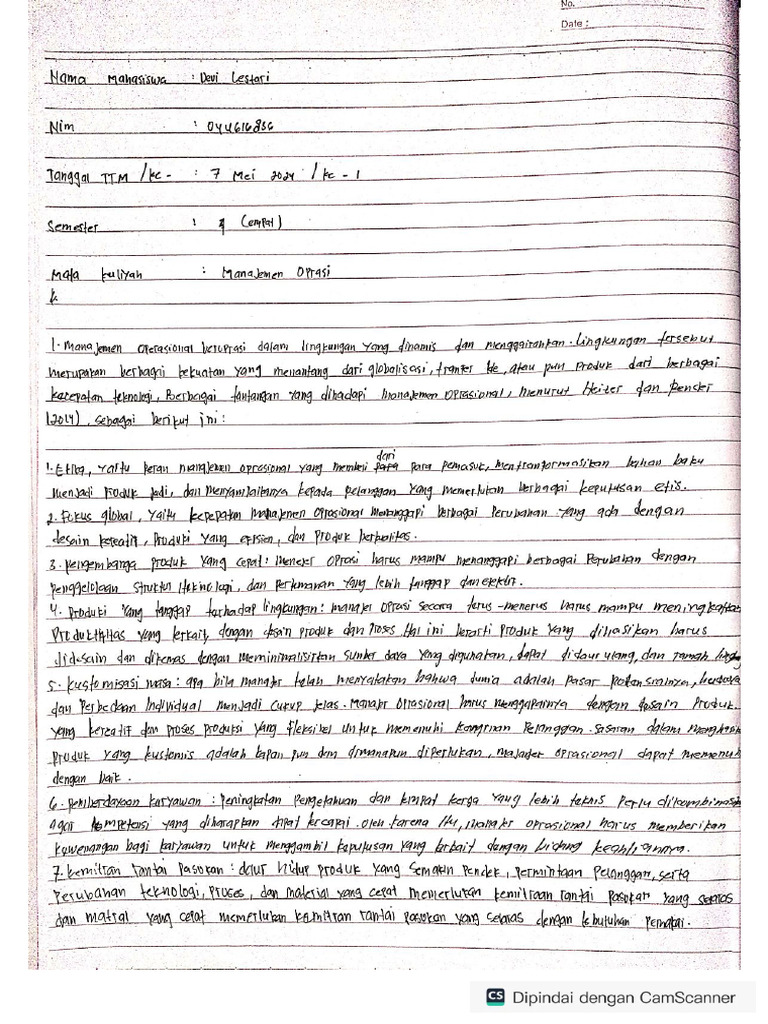 No.
Date :
Nama Mahasiswa : Devi Lestari
Nim : 044616856
Tanggal TTM /ke - : 7 Mei 2024 / ke - 1
Semester : 4 (empat)
Mata kuliyah : Manajemen Oprasi
k
1. Manajemen Operasional beruprasi dalam lingkungan yang dinamis dan menggairahkan. Lingkungan tersebut
merupakan berbagai kekuatan yang menantang dari globalisasi, tranfer ide, atau pun Produk dari berbagai
kecepatan teknologi, Berbagai tantangan yang dihadapi manajemen oprasional, menurut Heizer dan Render
(2014), sebagai berikut ini :
1. Etika, yaitu peran manajemen oprasional yang memberi dari para pemasuk, mentranformasikan bahan baku
menjadi produk jadi, dan menyampaikannya kepada pelanggan yang memerlukan berbagai keputusan etis.
2. Fokus global, yaitu kecepatan manajemen oprasional menanggapi berbagai Perubahan yang ada dengan
desain kereatif, Produksi yang efisien, dan Produk berkualitas.
3. pengembanga produk yang cepat : menejer oprasi harus mampu menanggapi berbagai Perubahan dengan
penggelolaan struktur, teknologi, dan yang lebih tanggap dan efektif.
4. Produksi yang tanggap terhadap lingkungan : manajer oprasi secara terus-menerus harus mampu meningkatkan
Produktifitas yang terkait dengan desain produk dan Proses Hal ini berarti produk yang dihasikan harus
didesain dan dikemas dengan meminimalisirkan sumber daya yang digunakan, dapat didaur ulang, dan ramah
5. kustomisasi masa : apa bila manajer telah menyatakan bahwa dunia adalah pasar
dan Perbedaan Individual menjadi cukup jelas. Manajer Oprasional harus menggapainya dengan desain Produk
yang kereatif dan proses produksi yang fleksibel untuk memenuhi keinginan Pelanggan. Sasaran dalam
produk yang kustomis adalah kapan pun dan dimanapun diperlukan, oprasional dapat
dengan baik.
6. pemberdayaan karyawan : peningkatan pengetahuan dan tempat kerja yang lebih teknis Perlu
agar kompetensi yang diharapkan dapat tercapai. Oleh karena itu, manajer oprasional harus memberikan
kewenangan bagi karyawan untuk menggambil keputusan yang terkait dengan bidang keahliannya.
7. Kemitran rantai Pasokan : daur hidup produk yang semakin pendek, permintaan pelanggan, serta
Perubahan teknologi, proses, dan material yang cepat memerlukan kemitraan rantai pasokan yang selaras
dan matrial yang cepat memerlukan kemitran rantai pasokan yang selaras dengan kebutuhan pemakai.
CS Dipindai dengan CamScanner